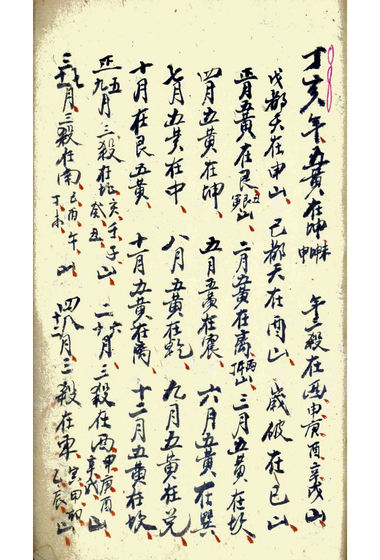 丁亥年五黄在坤申坤未 年三殺在西申庚酉辛戌山
戊都天在申山 己都天在酉山 歲破在巳山
正月五黄在艮丑艮寅山 二月五黄在離山 三月五黄在坎
四月五黄在坤 五月五黄在震 六月五黄在巽
七月五黄在中 八月五黄在乾 九月五黄在兑
十月在艮五黄 十一月五黄在離 十二月五黄在坎
正五九月三殺在北亥壬子癸丑山 二六十月三殺在西申庚酉辛戌山
三七十一月三殺在南巳丙午丁未山 四八十二月三殺在東寅甲卯乙辰山